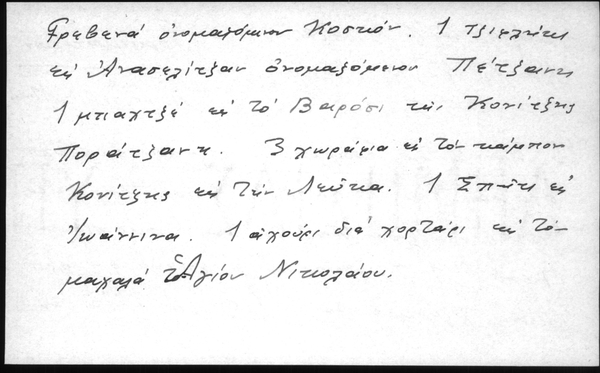 Γρεβενά ὀνομαζόμενον Κοστκόν. 1 τζιφλήκι
εἰς Ἀνασελίτζαν ὀνομαζόμενον Πέτζανη
1 μπαχτζέ εἰς τό Βαρόσι τῆς Κονίτζης
Ποράτζανη. 3 χωράφια εἰς τόν κάμπον
Κονίτζης εἰς τήν Λεύκα. 1 Σπήτι εἰς
Ἰωάννινα. 1 ἀχούρι διά χορτάρι εἰς τό
μαχαλά τοῦ Ἁγίου Νικολάου.